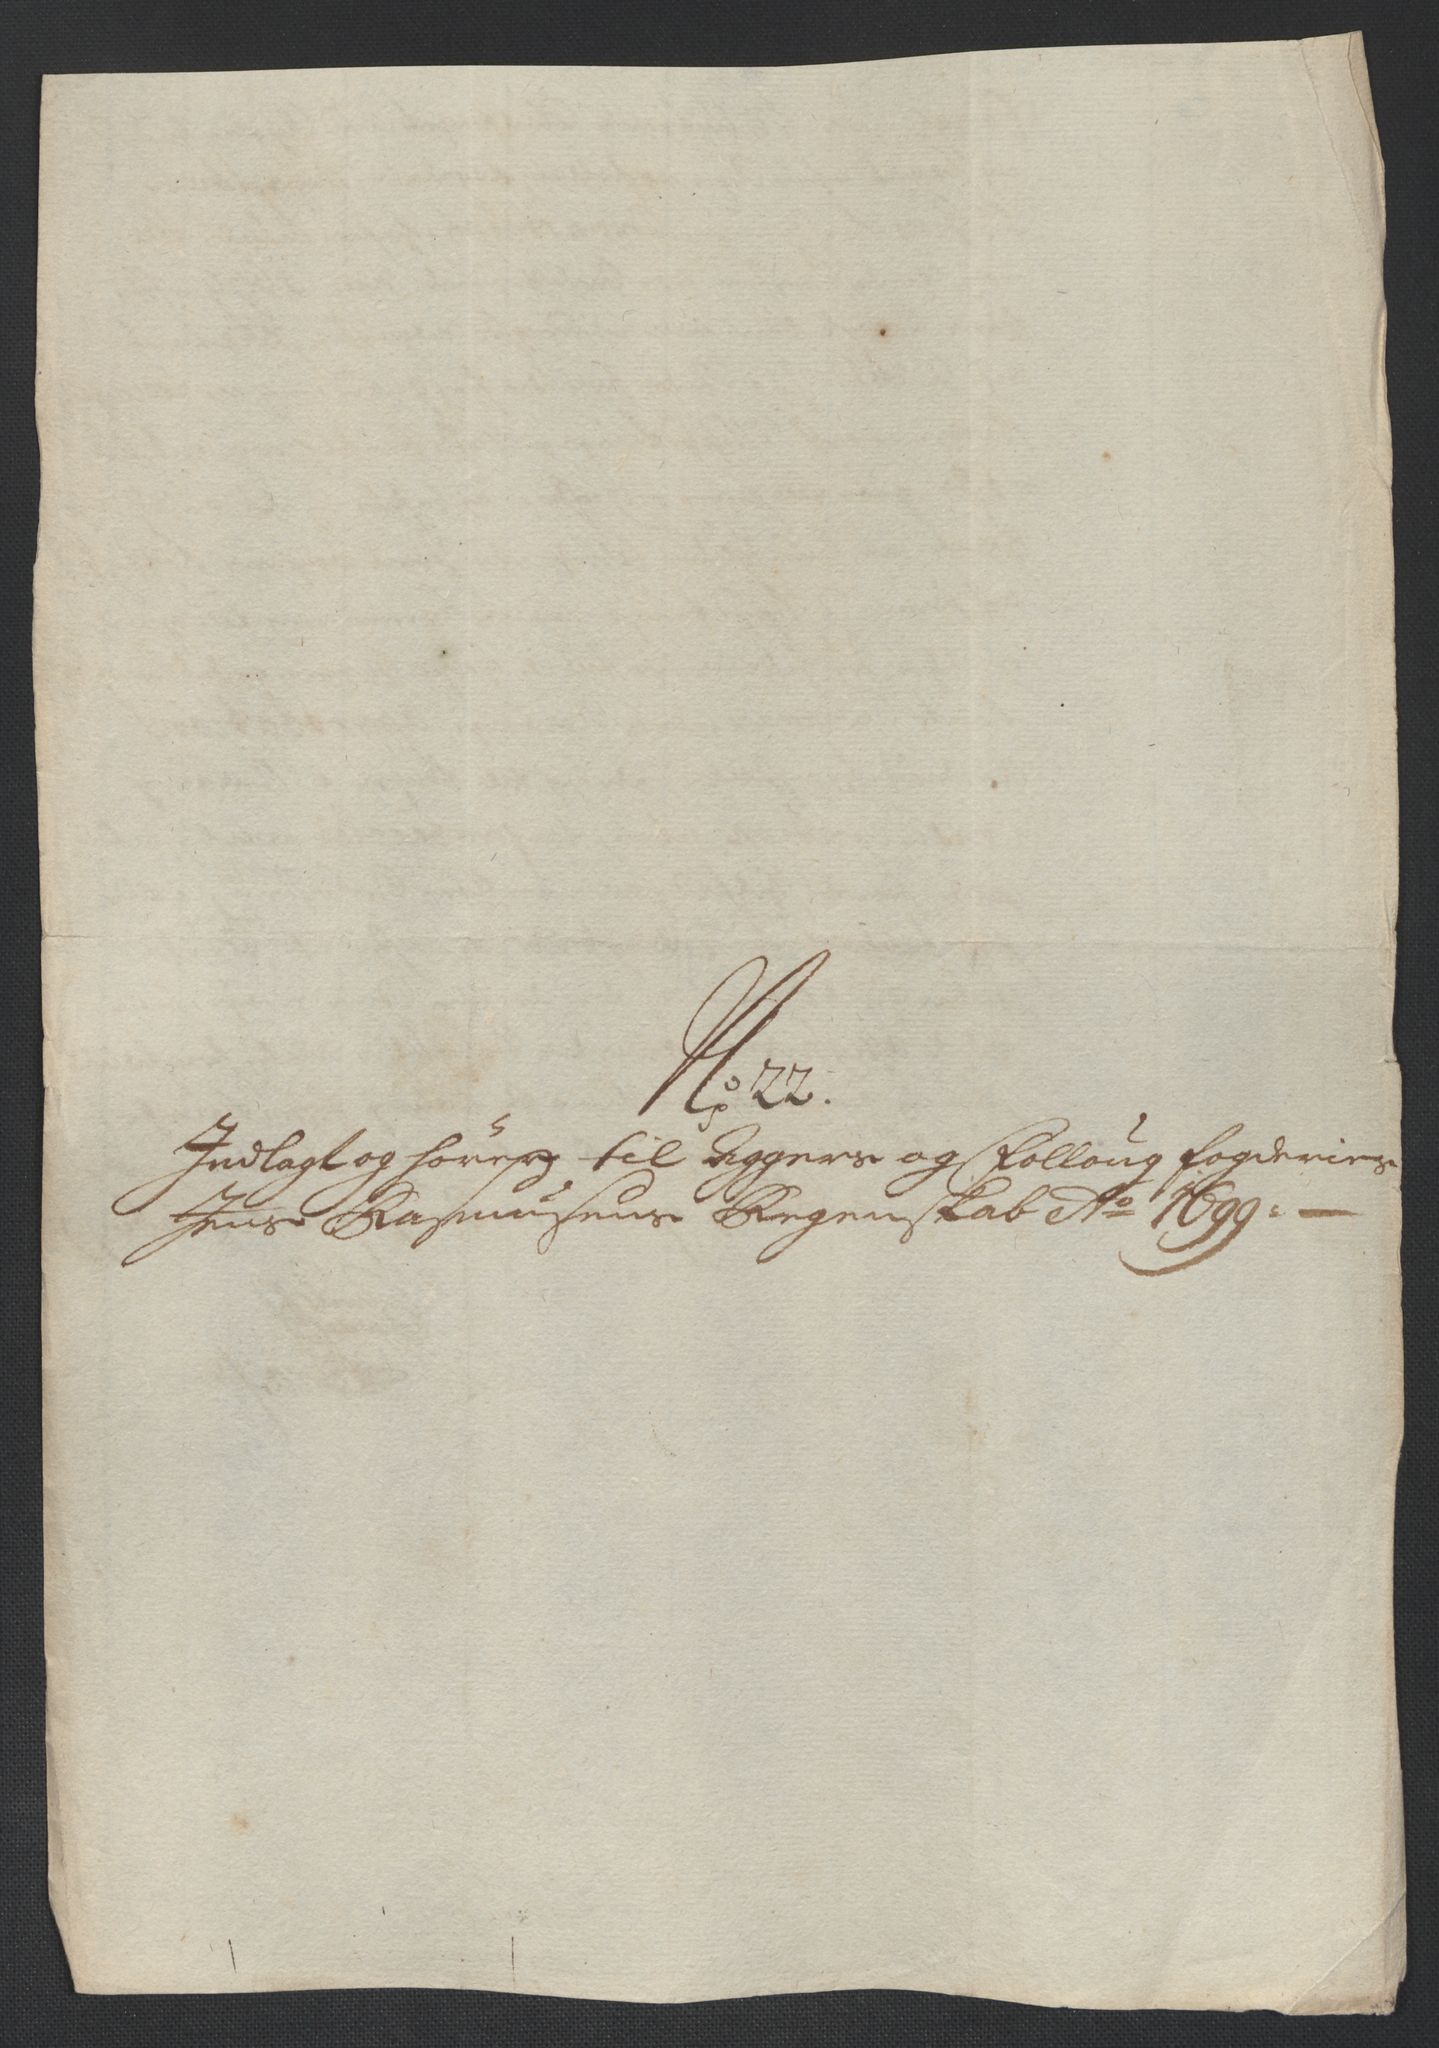 No 22.
Indlagt og hörer til Aggers og Folloug fogderies
Jens Rasmusens Regenskab Ao 1699: